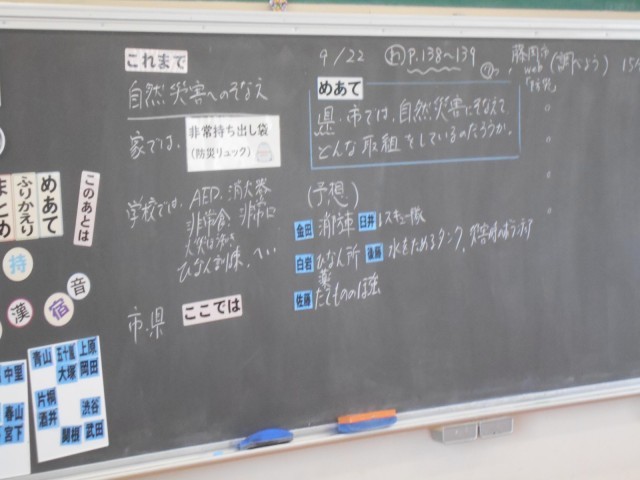 これまで
自然災害へのそなえ
家では、
非常持ち出し袋
(防災リュック)
学校では、AED、消火器
非常食、非常口
ひなん訓練、へい
市・県
ここでは
9/22
わ P.138〜139
めあて
県、市では、自然災害にそなえて、
どんな取組をしているのだろうか。
(予想)
金田 消防車 臼井 レスキュー隊
白岩 ひなん所 後藤 水をためるタンク、
佐藤 たてものの補強
藤岡市
web
(調べよう)
このあとは
めあて
ふりかえり
まとめ
持
音
漢
宿
中里
春山
宮下
青山
五十嵐
上原
大塚
岡田
片桐
酒井
渋谷
関根
武田